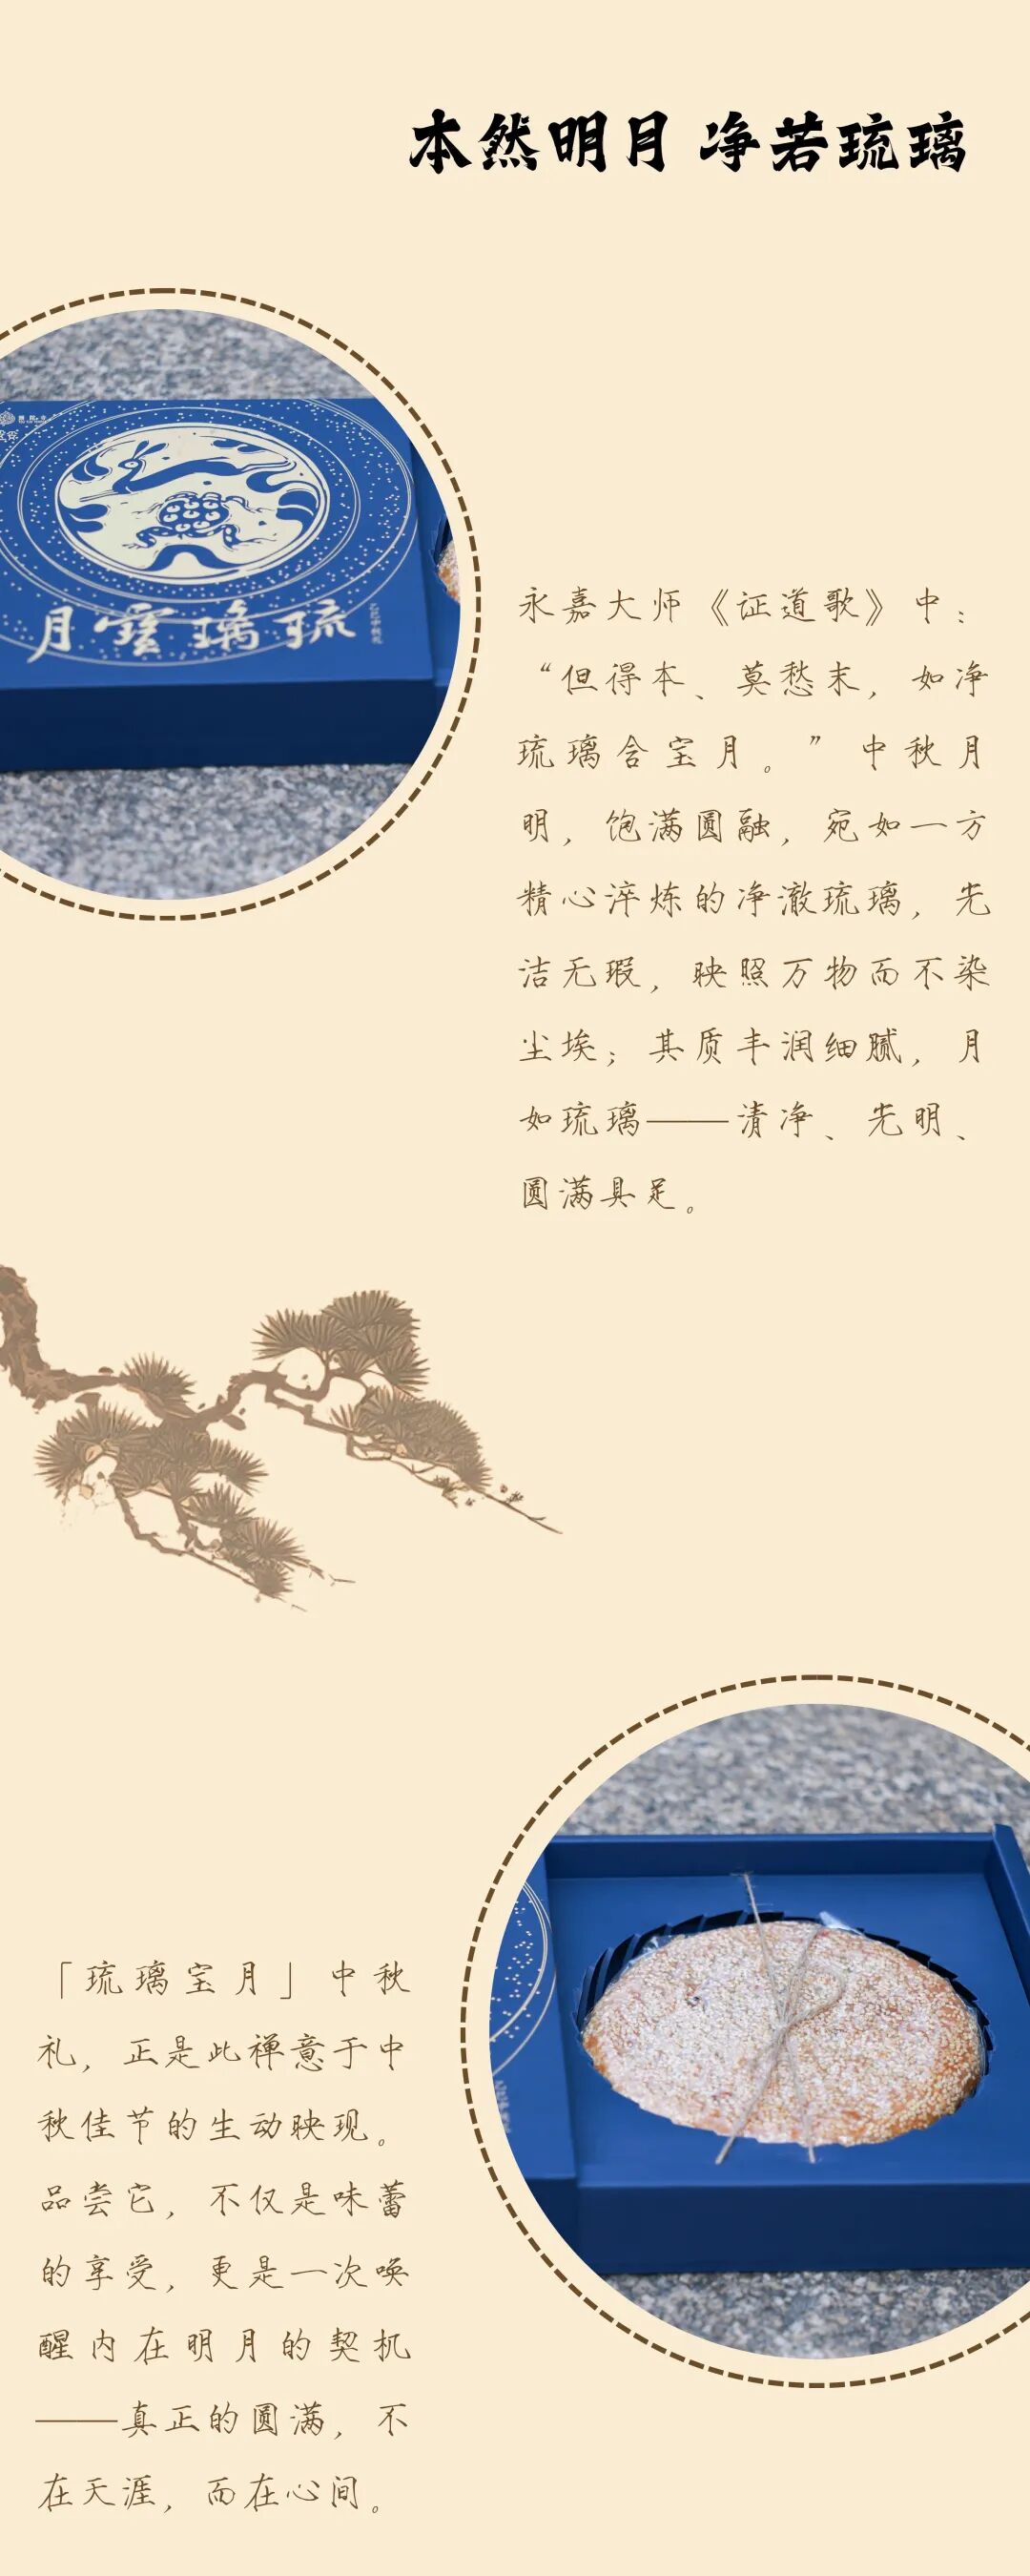 本然明月 净若琉璃
月寶璃琉
永嘉大师《证道歌》中：
“但得本、莫愁末，如净
琉璃含宝月。”中秋月
明，饱满圆融，宛如一方
精心淬炼的净澈琉璃，光
洁无瑕，映照万物而不染
尘埃；其质丰润细腻，月
如琉璃——清净、光明、
圆满具足。
「琉璃宝月」中秋
礼，正是此禅意于中
秋佳节的生动映现。
品尝它，不仅是味蕾
的享受，更是一次唤
醒内在明月的契机
——真正的圆满，不
在天涯，而在心间。